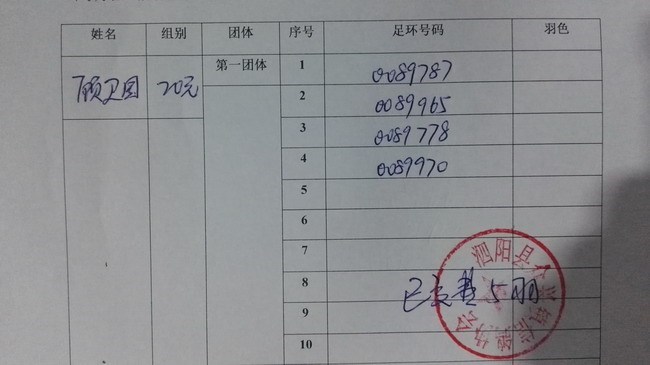 姓名 组别 团体 序号 足环号码 羽色
顾卫国 20元 第一团体 1 0089787
2 0089965
3 0089778
4 0089970
5
6
7
8
9
10
泗阳县 信鸽协会